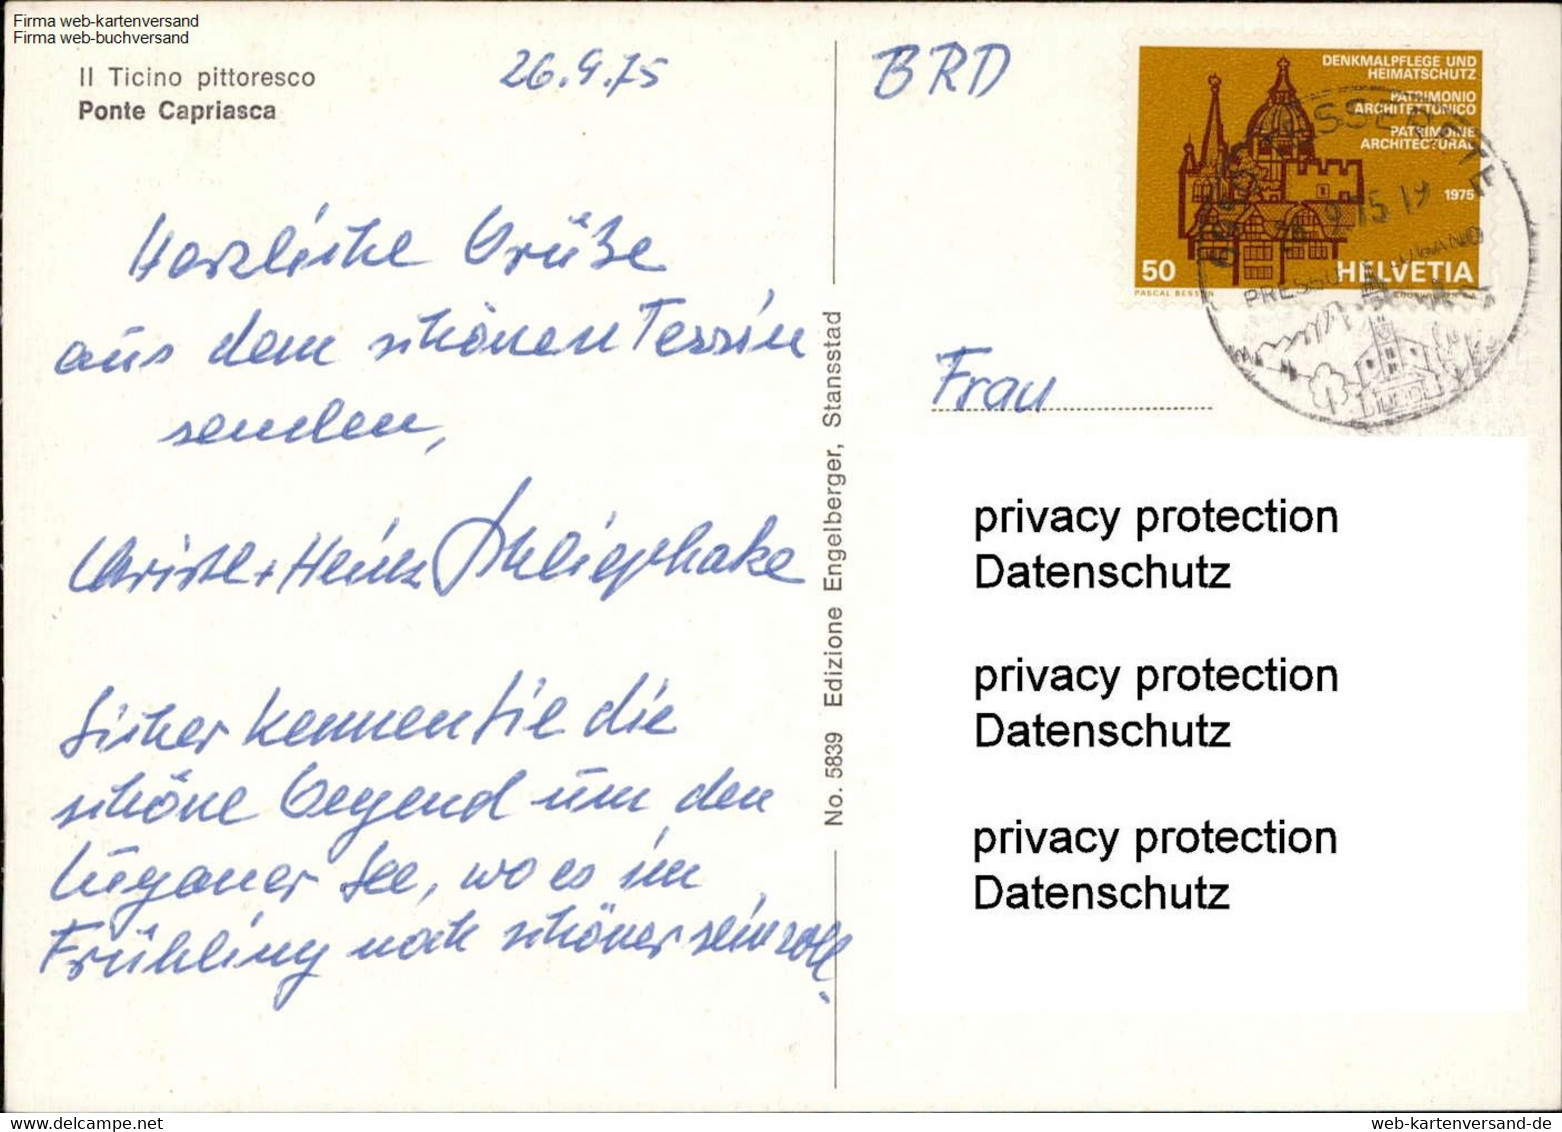 Firma web-kartenversand
Firma web-buchversand
Il Ticino pittoresco
Ponte Capriasca
26.9.75
Herzliche Grüße
aus dem schönen Tessin
senden,
Christl + Heinz
Sicher kennen Sie die
schöne Gegend um den
Luganer See, wo es im
Frühling noch schöner sein soll.
No. 5839 Edizione Engelberger, Stansstad
BRD
DENKMALPFLEGE UND
HEIMATSCHUTZ
PATRIMONIO
ARCHITETTONICO
PATRIMOINE
ARCHITECTURAL
1975
50
HELVETIA
PASCAL BESSON
Frau
privacy protection
Datenschutz
privacy protection
Datenschutz
privacy protection
Datenschutz
web-kartenversand-de
web-kartenversand-de